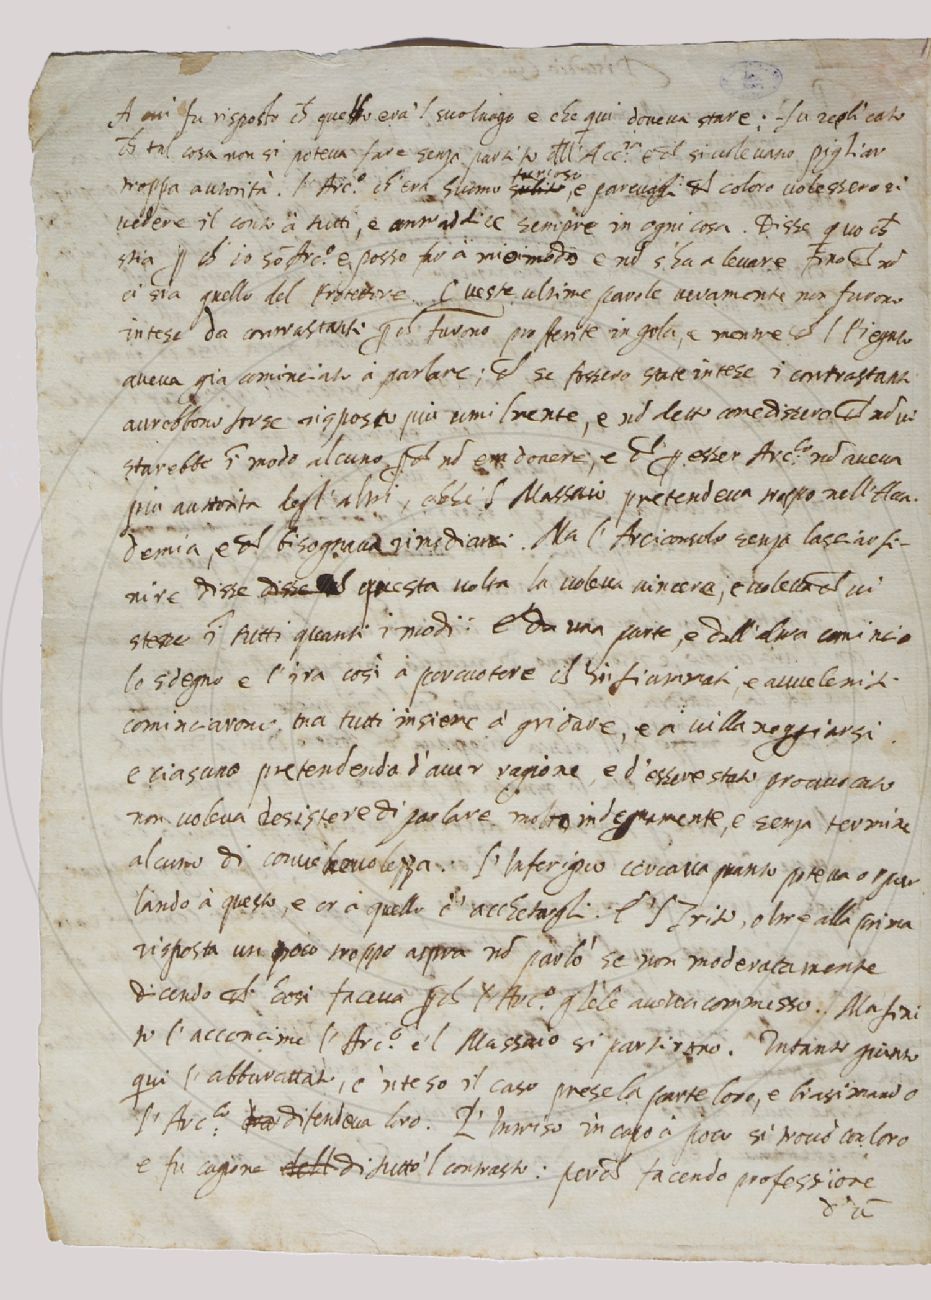 A cui fu risposto ch̃ questo era 'l suo luogo e che qui doveva stare; fu replicato
ch̃ tal cosa non si poteva fare senza partito dell'Acc.ᵃ e ch̃ si volevano pigliar
troppa autorità. l'Arc.º ch̃ era huomo subito furioso, e parevagli ch̃ coloro volessero ri
vedere il conto à tutti, e contradice sempre in ogni cosa. Disse quo ch̃
stia ꝑ ch̃ io sõ Arc.º e posso far à mio modo e nõ s'ha a levare fino ch̃ nõ
ci sia quello del Protettore. Queste ultime parole veramente non furono
intese da contrastanti ꝑch̃ furono profferite in gola, e mentre ch̃ l
aveva già cominciato à parlare; ch̃ se fossero state intese i contrastanti
avrebbono forse risposto più umilmente, e nõ detto come dissero ch̃ nõ vi
starebbe ĩ modo alcuno ꝑch̃ nõ era dovere, e ch̃ ꝑ esser Arc.º nõ aveva
più autorità degl'altri, e che 'l Massaio pretendeva troppo nell'Acca-
demia, e ch̃ bisognava rimediarci. Ma l'Arciconsolo senza lasciar fi-
nire disse disse ch̃ questa volta la voleva vincere, e voleva ch̃ vi
stesse ĩ tutti quanti i modi: E da una parte, e dall'altra cominciò
lo sdegno e l'ira così à percuotere ch̃ infiammati, e avveleniti
cominciarono tra tutti insieme à gridare, e à villaneggiarsi.
e ciascuno pretendendo d'aver ragione, e d'essere stato provocato
non voleva desistere di parlare molto indegnamente, e senza termine
alcuno di convenevolezza. L'Inferigno cercava quanto poteva or par
lando à questo, e or à quello d'acchetargli. E 'l Trito, oltre alla prima
risposta un poco troppo aspra nõ parlò se non moderatamente
dicendo ch̃ così faceva ꝑch̃ l'Arc.º gliele aveva commesso. Ma fini
to l'acconcime l'Arc.º e 'l Massaio si partirono. Intanto giunto
qui l'abburattato, e 'nteso il caso prese la parte loro, e biasimando
l'Arc.º difendeva loro. L'Inriso in capo à poco si trovò con loro
e fu cagione dell di tutto 'l contrasto: perch̃ facendo professione
d' ũ